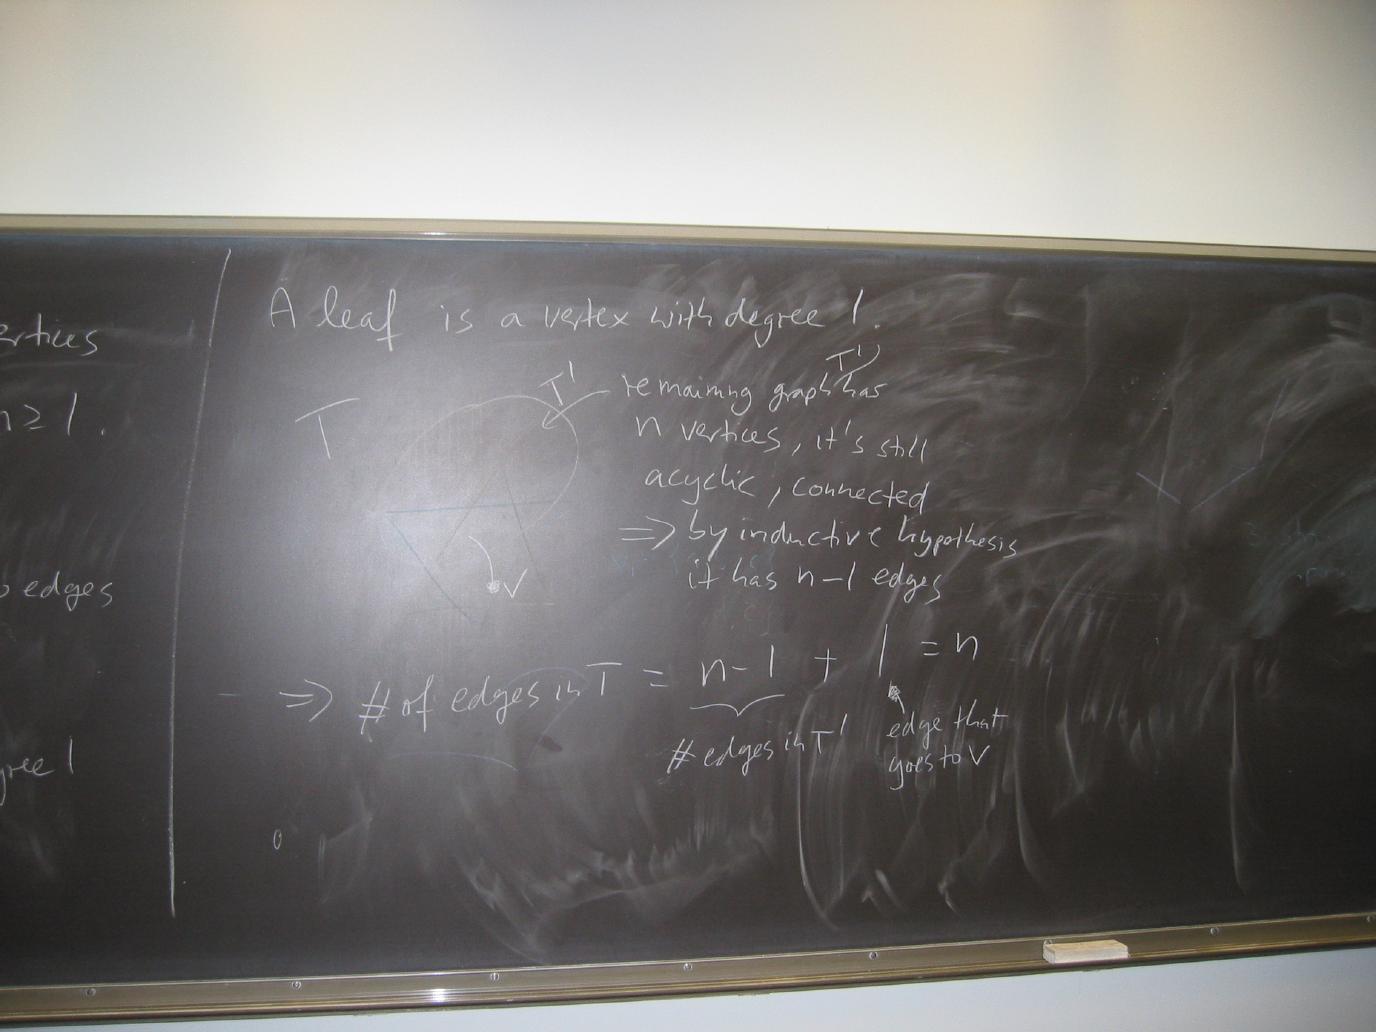 ertices
n ≥ 1.
edges
gree 1
A leaf is a vertex with degree 1.
T
T'
T'
remaining graph has
n vertices, it's still
acyclic, connected
⇒ by inductive hypothesis
it has n-1 edges
V
⇒ # of edges in T = n-1 + 1 = n
# edges in T'
edge that
goes to V